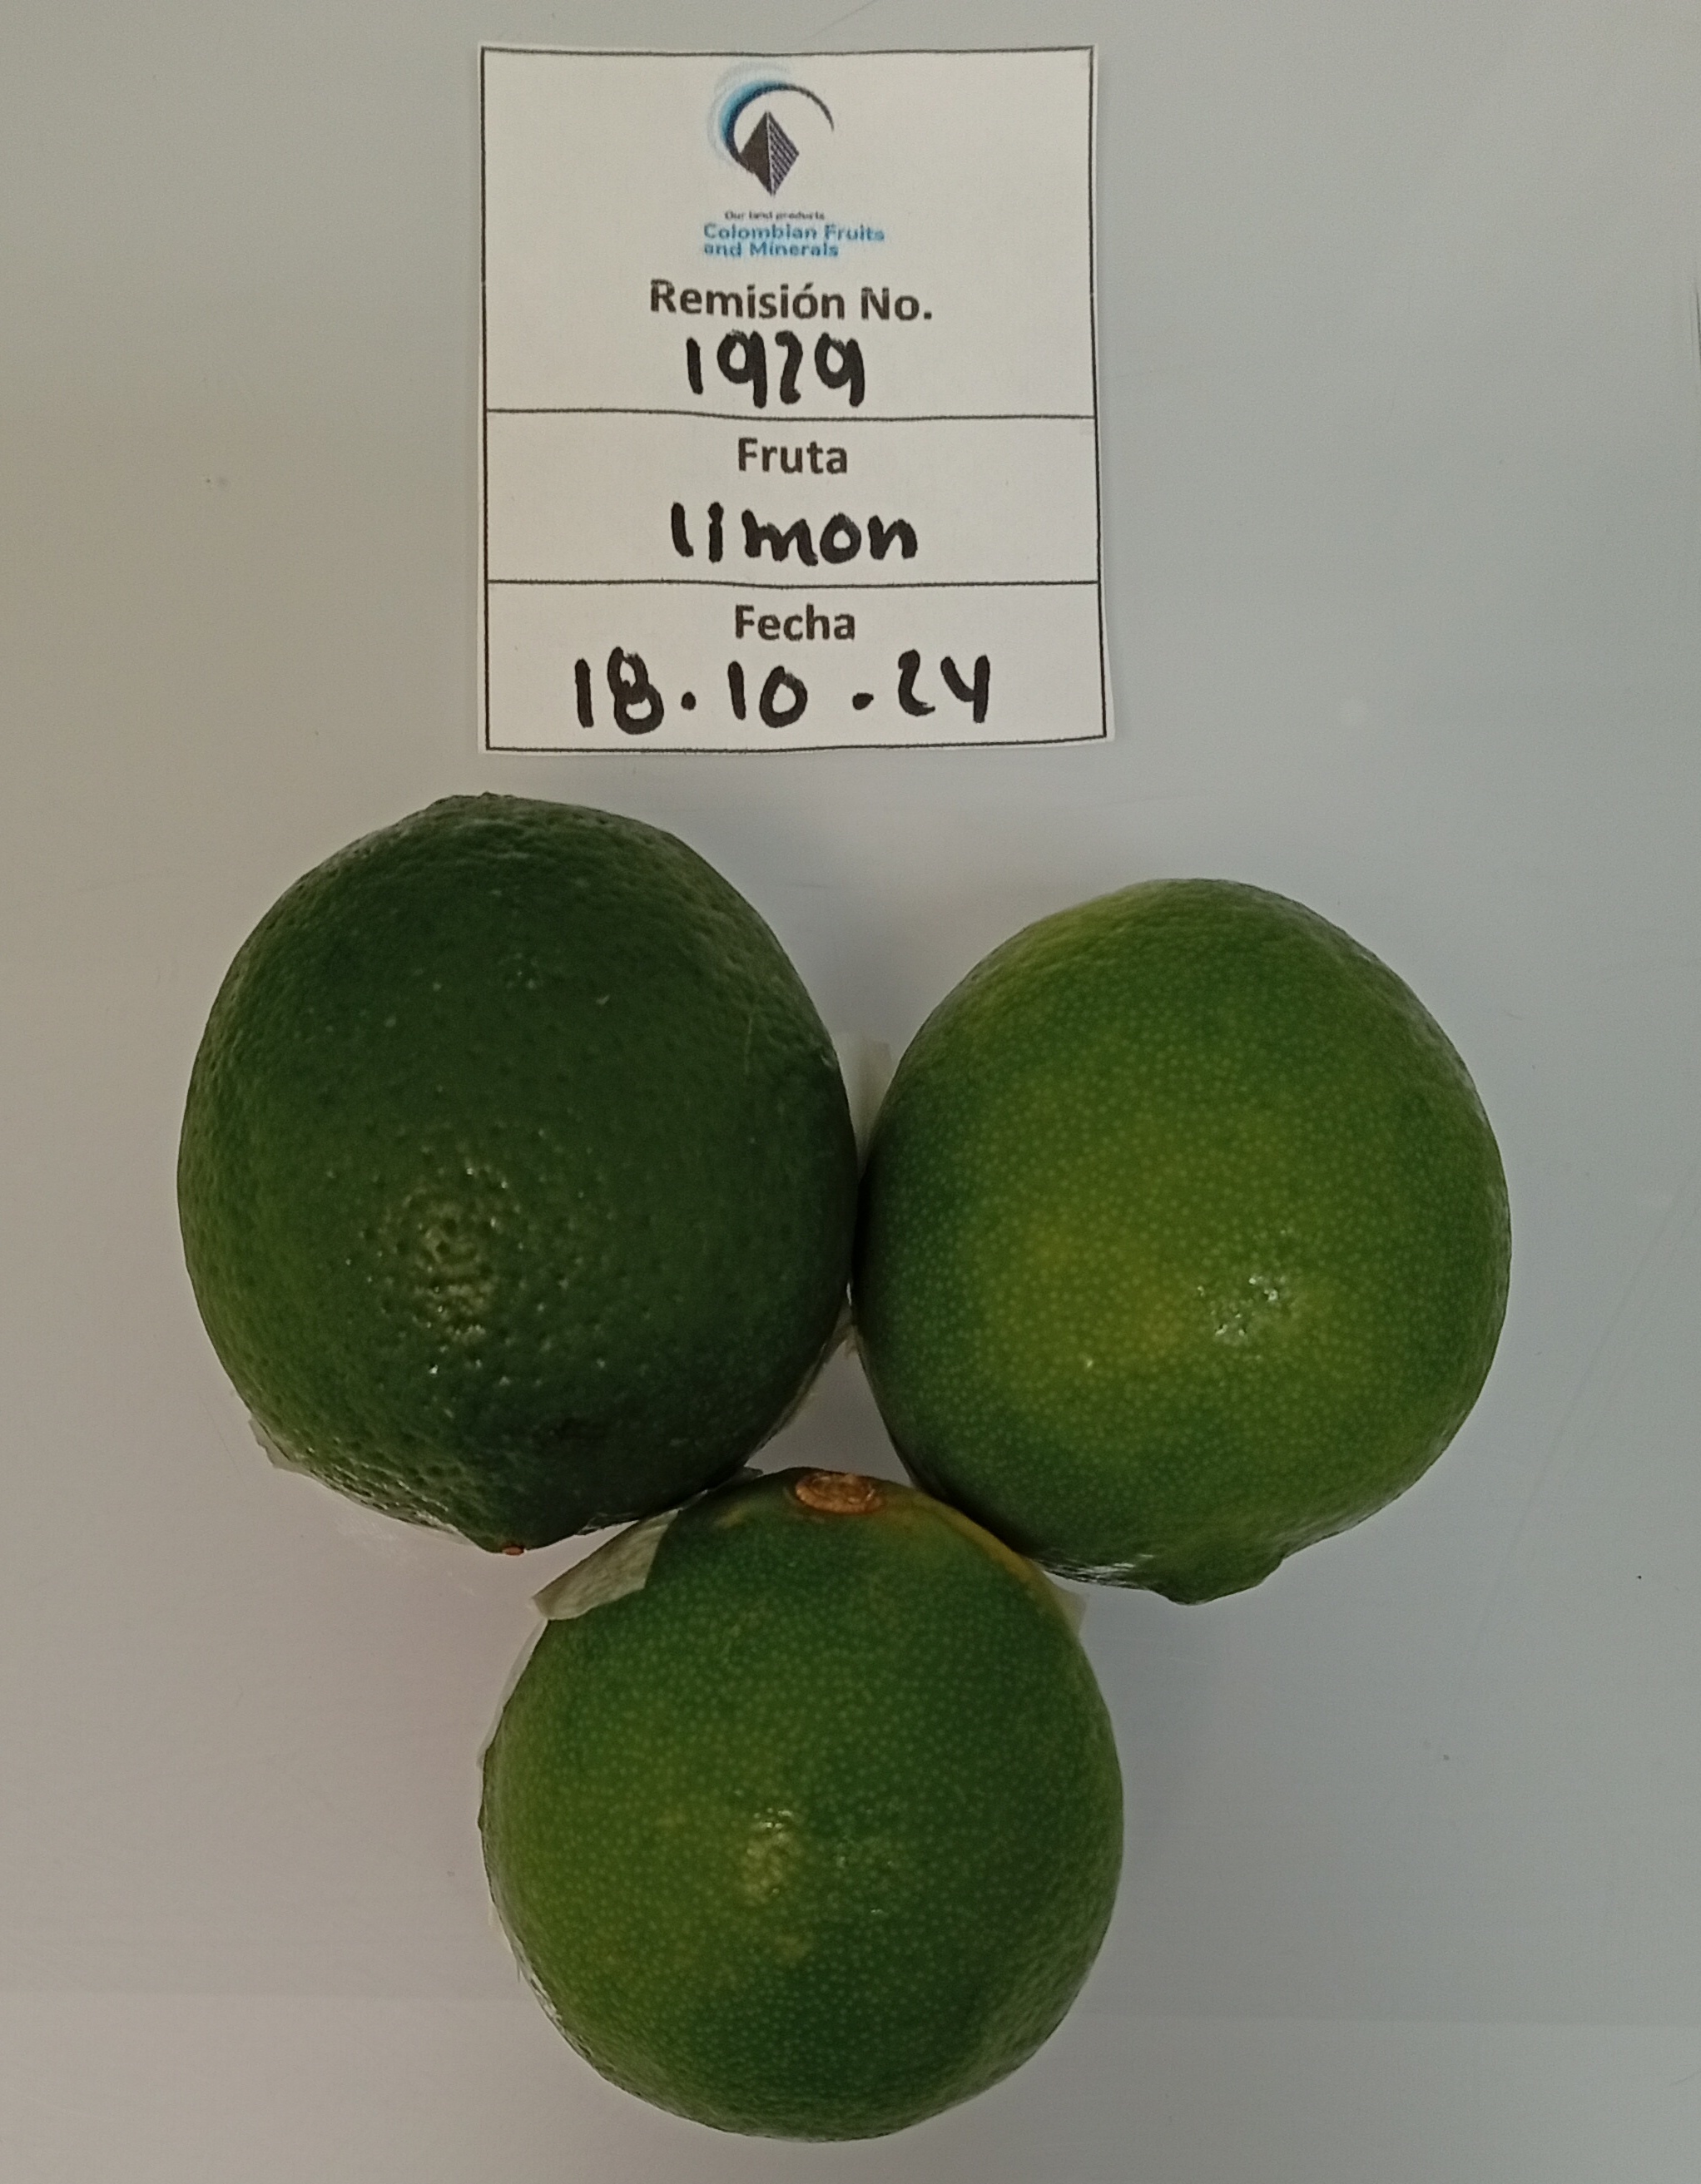 Our land products
Colombian Fruits
and Minerals
Remisión No.
1929
Fruta
limon
Fecha
18.10.24